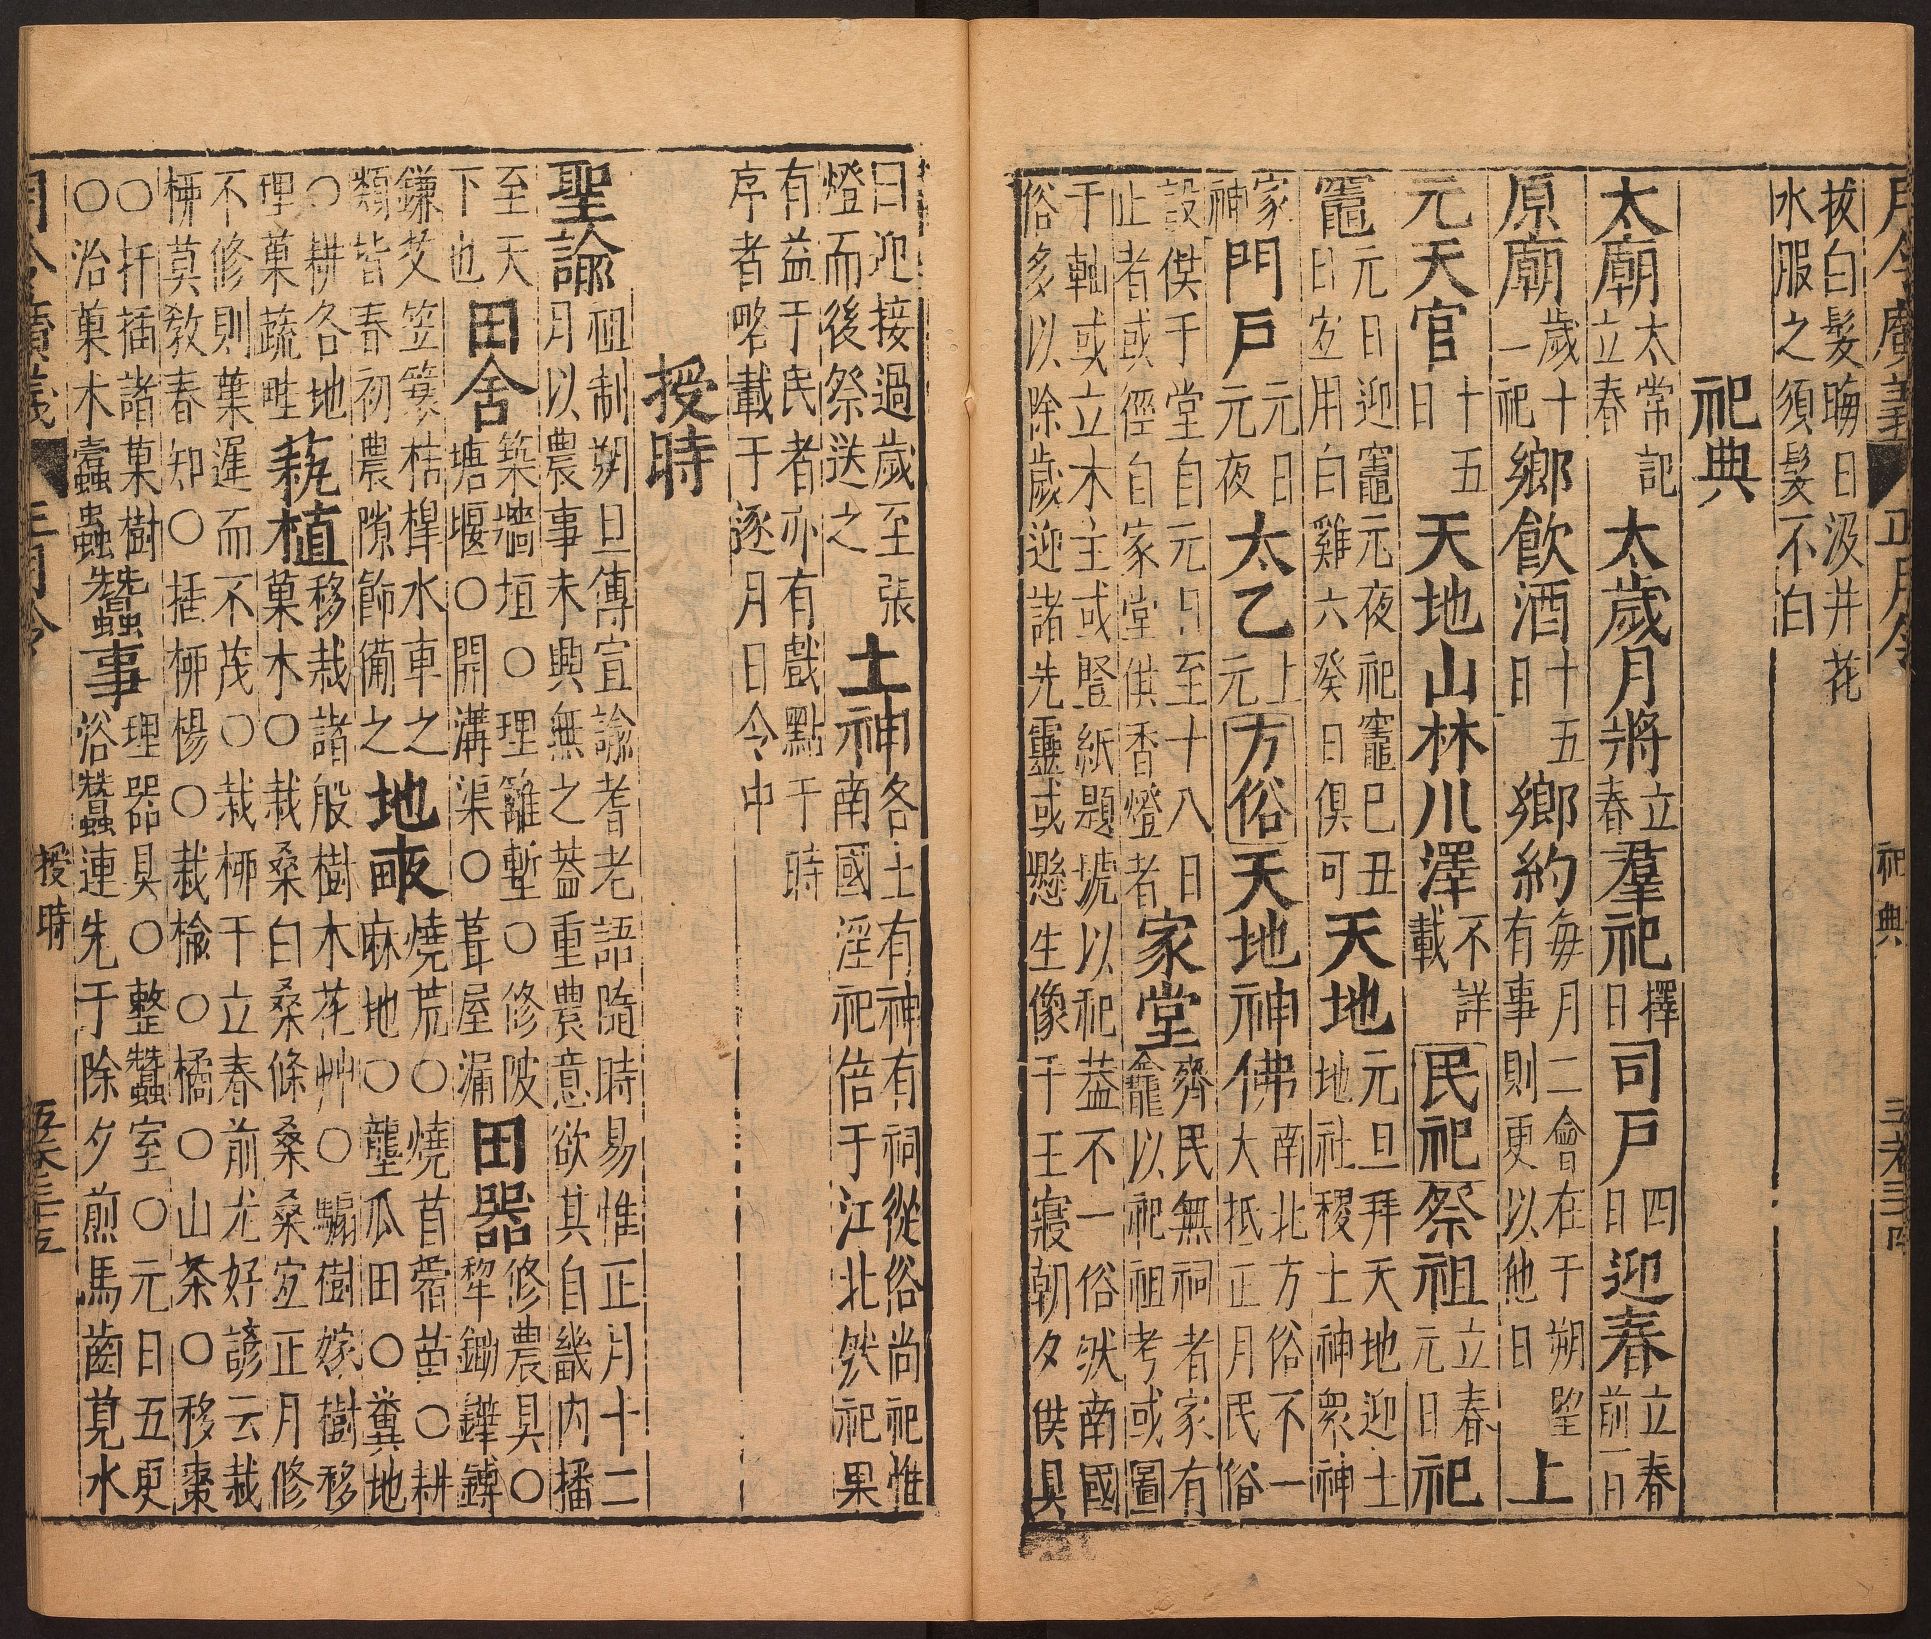 月令廣義 正月令 祀典
拔白髮晦日汲井花
水服之須髮不白
祀典
太廟 太常記
立春 太歲月將 立
春 羣祀 擇
日 司戶 四
日 迎春 立春
前一日
原廟 歲十
一祀 鄉飲酒 十五
日 鄉約 每月二會在于朔望
有事則更以他日 上
元天官 十五
日 天地山林川澤 不詳
載 民祀 祭祖 立春
元日 祀
竈 元日迎竈元夜祀竈巳丑
日宜用白雞六癸日俱可 天地 元旦拜天地迎土
地社稷土神眾神
家
神 門戶 元日
元夜 太乙 上
元 方俗 天地神佛 南北方俗不一
大抵正月民俗
設供于堂自元日至十八日
止者或徑自家堂供香燈者 家堂 齊民無祠者家有
龕以祀祖考或圖
于軸或立木主或豎紙題號以祀葢不一俗然南國
俗多以除歲迎諸先靈或懸生像于王寢朝夕供具
日迎接過歲至張
燈而後祭送之 土神 各土有神有祠從俗尚祀惟
南國淫祀倍于江北然祀果
有益于民者亦有戲點于時
序者略載于逐月日令中
授時
聖諭 祖制朔旦傳宣諭耆老語隨時易惟正月十二
月以農事未興無之葢重農意欲其自畿內播
至天
下也 田舍 築墻垣○理籬塹○修陂
塘堰○開溝渠○葺屋漏 田器 修農具○
犂鋤鏵鎛
鎌艾笠簑桔槔水車之
類皆春初農隙餙備之 地畞 燒荒○燒苜蓿茁○耕
麻地○壟瓜田○糞地
○耕各地
理菓蔬畦 蓺植 移栽諸般樹木花艸○騸樹嫁樹移
菓木○栽桑白桑條桑桑宜正月修
不修則葉遲而不茂○栽栁于立春前尤好諺云栽
栁莫敎春知○插栁楊○栽楡○橘○山茶○移棗
○扦插諸菓樹
○治菓木蠹蟲 蠶事 理器具○整蠶室○元日五更
浴蠶連先于除夕煎馬齒莧水
授時